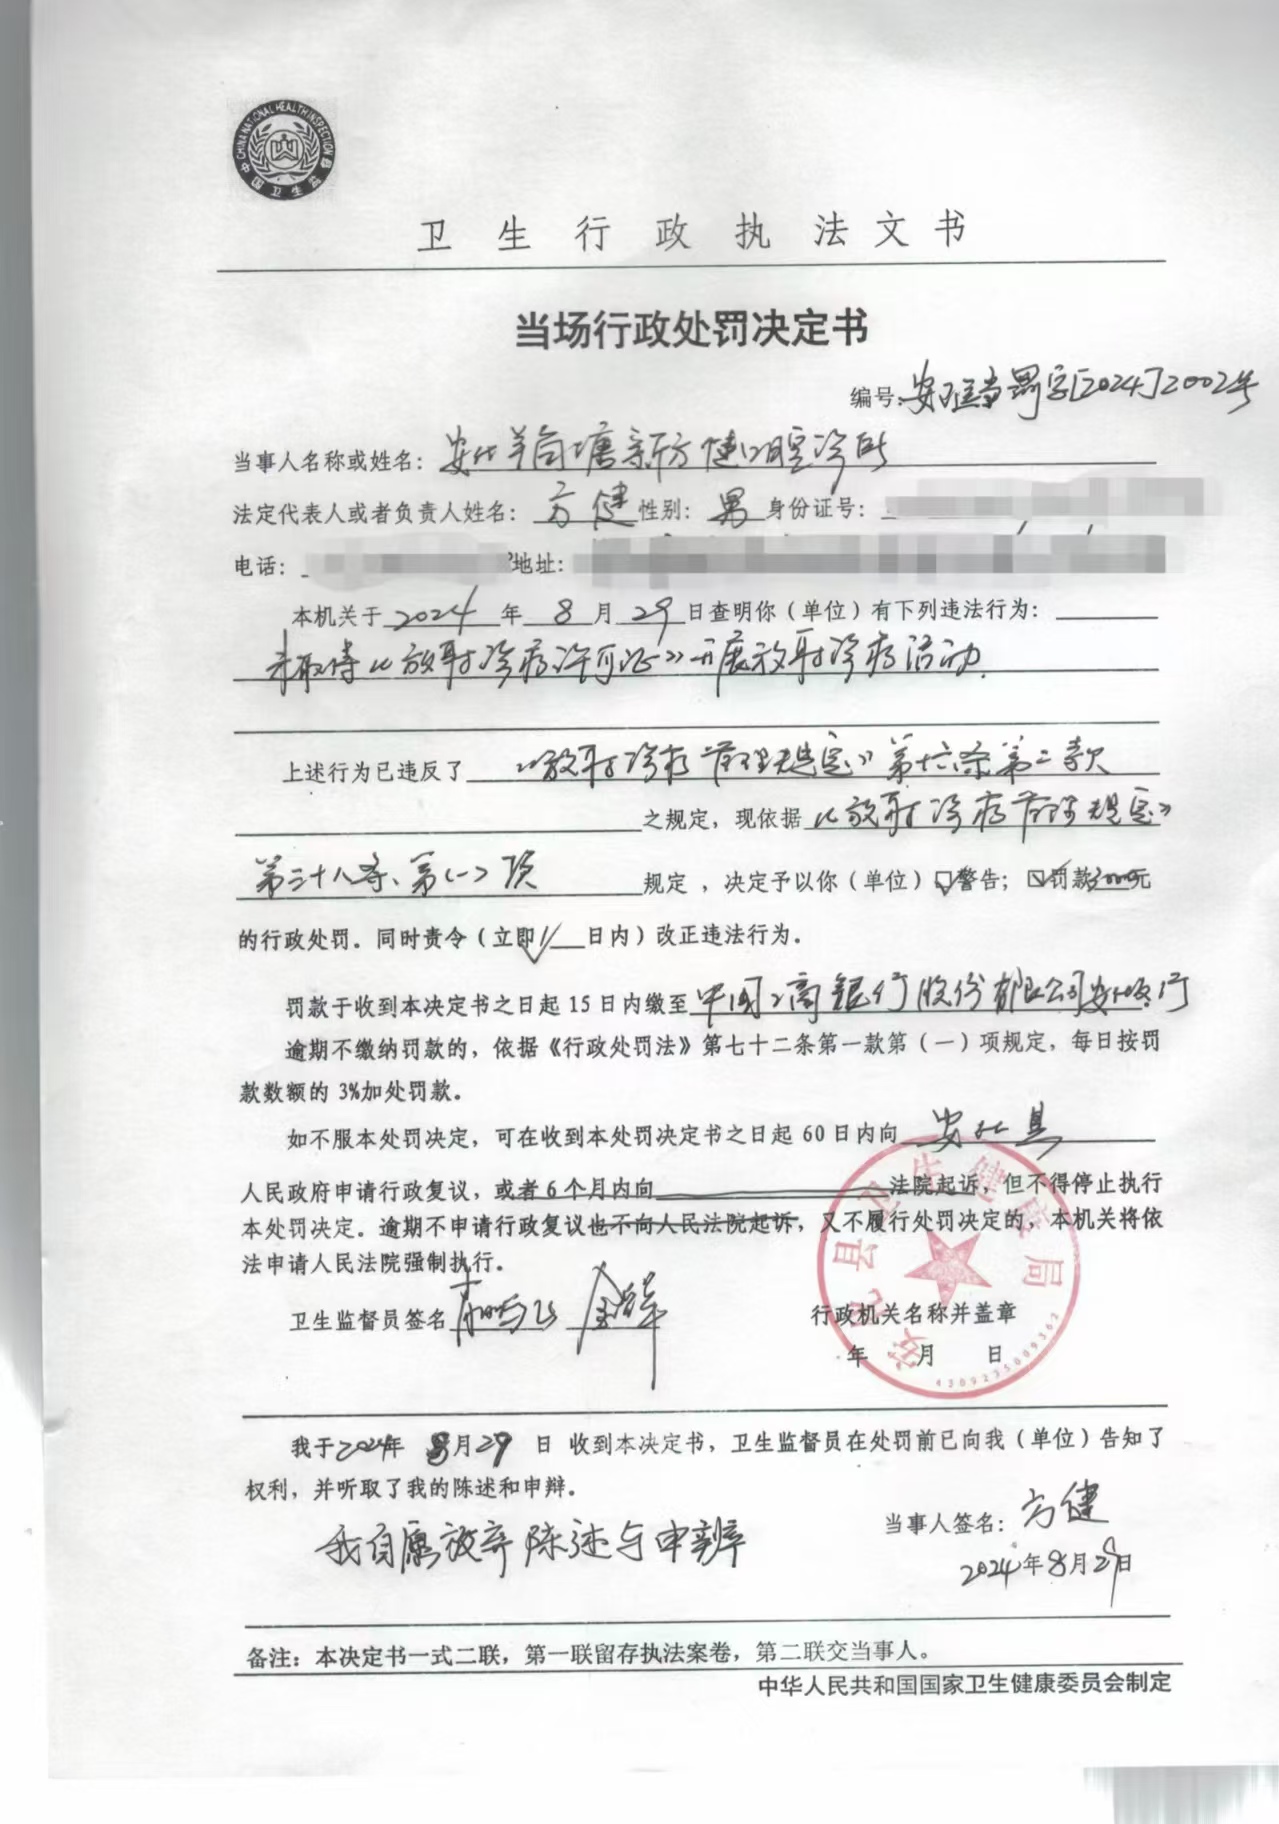 CHINA NATIONAL HEALTH INSPECTION
中国卫生监督
卫生行政执法文书
当场行政处罚决定书
编号:安卫医当罚字[2024]2002号
当事人名称或姓名:安化羊角塘新方健口腔诊所
法定代表人或者负责人姓名:方健 性别:男 身份证号:
电话: 地址:
本机关于2024年8月29日查明你(单位)有下列违法行为:
未取得《放射诊疗许可证》开展放射诊疗活动.
上述行为已违反了《放射诊疗管理规定》第十六条第二款
之规定,现依据《放射诊疗管理规定》
第三十八条、第(一)项 规定,决定予以你(单位)☑警告;☑罚款3000元
的行政处罚。同时责令(立即√/ 日内)改正违法行为.
罚款于收到本决定书之日起15日内缴至中国工商银行股份有限公司安化支行
逾期不缴纳罚款的,依据《行政处罚法》第七十二条第一款第(一)项规定,每日按罚
款数额的3%加处罚款。
如不服本处罚决定,可在收到本处罚决定书之日起60日内向安化县
人民政府申请行政复议,或者6个月内向 法院起诉,但不得停止执行
本处罚决定。逾期不申请行政复议也不向人民法院起诉,又不履行处罚决定的,本机关将依
法申请人民法院强制执行。
卫生监督员签名
行政机关名称并盖章
年 月 日
安化县卫生健康局
4309235009362
我于2024年8月29日 收到本决定书,卫生监督员在处罚前已向我(单位)告知了
权利,并听取了我的陈述和申辩。
我自愿放弃陈述与申辩
当事人签名:方健
2024年8月29日
备注:本决定书一式二联,第一联留存执法案卷,第二联交当事人。
中华人民共和国国家卫生健康委员会制定